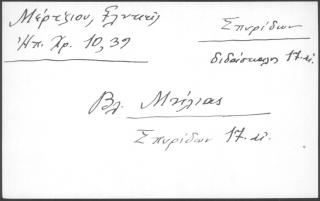 Μέρτζιου,
Ηπ. Χρ. 10, 39
Σπυρίδων
διδάσκαλος 17. αἰ.
Βλ. Μήλιας
Σπυρίδων 17. αἰ.